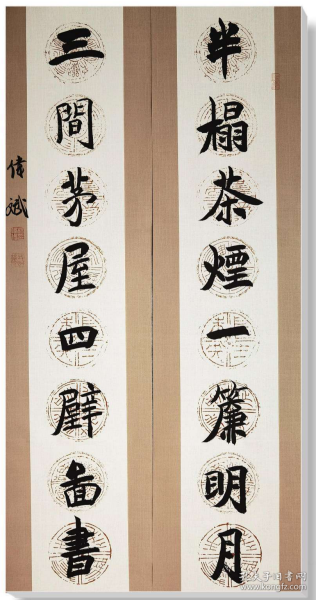 半榻茶煙一簾明月
三間茅屋四壁圖書
偉斌
孔夫子旧书网